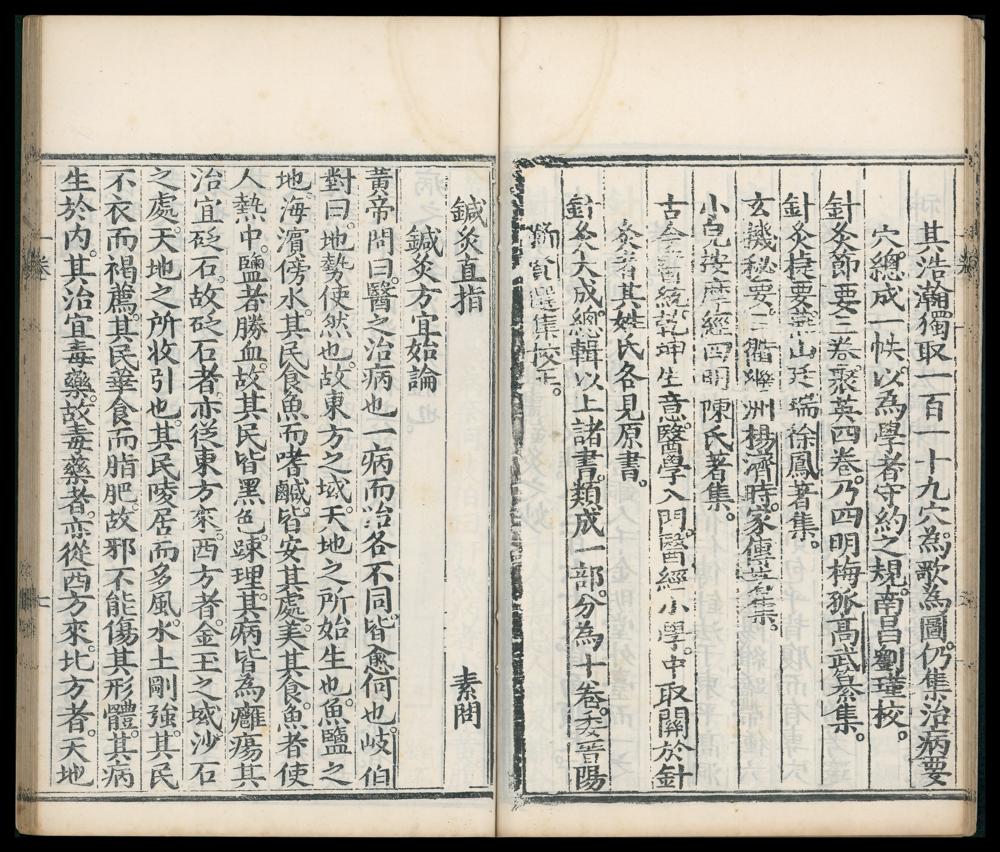 其浩瀚獨取一百一十九穴。為歌為圖。仍集治病要
穴總成一帙。以為學者守約之規。南昌劉瑾校。
針灸節要三卷。聚英四卷。乃四明梅孤高武纂集。
針灸捷要燕山廷瑞徐鳳著集。
玄機秘要三衢繼洲楊濟時家傳著集。
小兒按摩經四明陳氏著集。
古今醫統。乾坤生意。醫學入門。醫經小學。中取關於針
灸者。其姓氏各見原書。
針灸大成。總輯以上諸書。類成一部。分為十卷。委晉陽
靳賢選集校正。
鍼灸直指
鍼灸方宜始論　素問
黃帝問曰。醫之治病也。一病而治各不同。皆愈何也。岐伯
對曰。地勢使然也。故東方之域。天地之所始生也。魚鹽之
地。海濱傍水。其民食魚而嗜鹹。皆安其處。美其食。魚者使
人熱中。鹽者勝血。故其民皆黑色。踈理。其病皆為癰瘍。其
治宜砭石。故砭石者。亦從東方來。西方者。金玉之域。沙石
之處。天地之所收引也。其民陵居而多風。水土剛強。其民
不衣而褐薦。其民華食而脂肥。故邪不能傷其形體。其病
生於內。其治宜毒藥。故毒藥者。亦從西方來。北方者。天地